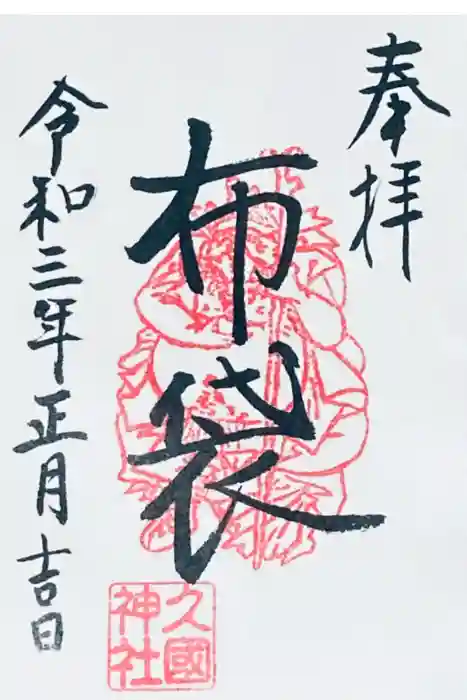 奉拝
布袋
久國
神社
令和三年正月吉日